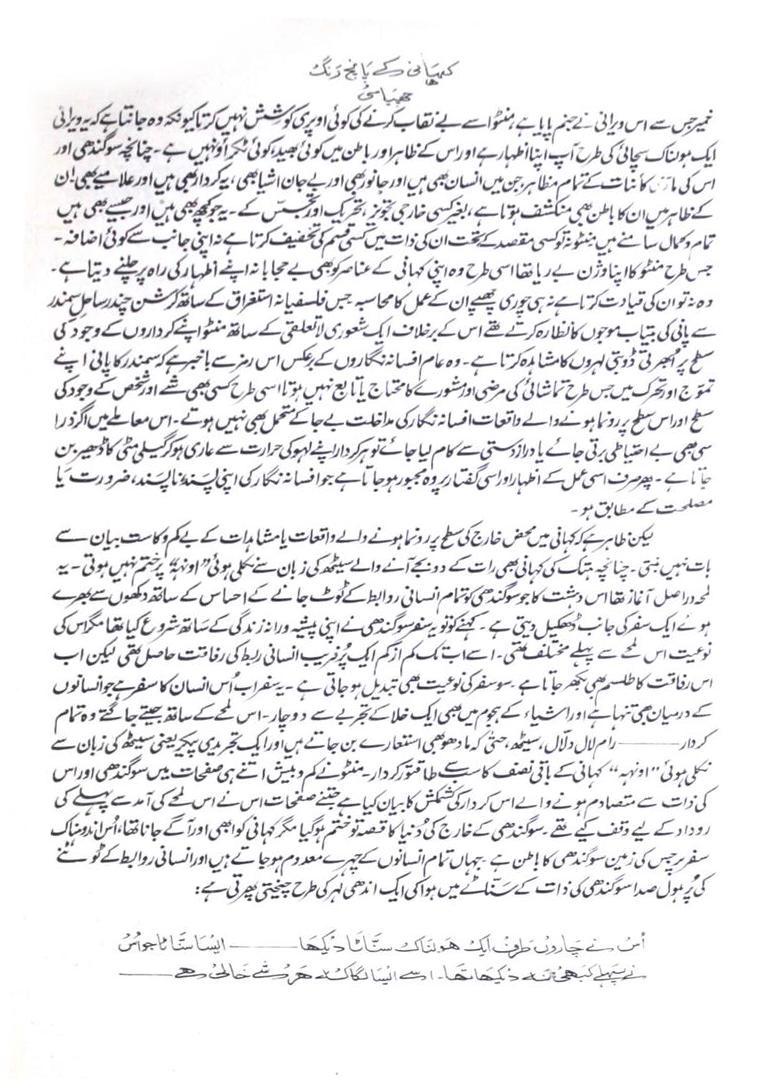 کہانی کے پانچ رنگ
چھیاسی
خمیر جس سے اس ویرانی نے جنم پایا ہے، منٹو اسے بے نقاب کرنے کی کوئی اوپری کوشش نہیں کرتا کیونکہ وہ جانتا ہے کہ یہ ویرانی
ایک ہولناک سچائی کی طرح آپ اپنا اظہار ہے اور اس کے ظاہر اور باطن میں کوئی بھید، کوئی ٹکراؤ نہیں ہے۔ چنانچہ سوگندھی اور
اس کی مادّی کائنات کے تمام مظاہر جن میں انسان بھی ہیں اور جانور بھی اور بے جان اشیا بھی، یہ کردار بھی ہیں اور علامیے بھی! ان
کے ظاہر میں ان کا باطن بھی منکشف ہوتا ہے، بغیر کسی خارجی تجویز، تحریک اور تجسّس کے۔ یہ جو کچھ بھی ہیں اور جیسے بھی ہیں
تمام و کمال سامنے ہیں منٹو نہ تو کسی مقصد کے تحت ان کی ذات میں کسی قسم کی تخفیف کرتا ہے نہ اپنی جانب سے کوئی اضافہ۔
جس طرح منٹو کا اپنا وژن بے ریا تھا اسی طرح وہ اپنی کہانی کے عناصر کو بھی بے حجابانہ اپنے اظہار کی راہ پر چلنے دیتا ہے۔
وہ نہ تو ان کی قیادت کرتا ہے نہ ہی چوری چھپے ان کے عمل کا محاسبہ جس فلسفیانہ استغراق کے ساتھ کرشن چندر ساحلِ سمندر
سے پانی کی بیتاب موجوں کا نظارہ کرتے تھے اس کے برخلاف ایک شعوری لاتعلقی کے ساتھ منٹو اپنے کرداروں کے وجود کی
سطح پر اُبھرتی ڈوبتی لہروں کا مشاہدہ کرتا ہے۔ وہ عام افسانہ نگاروں کے برعکس اس رمز سے باخبر ہے کہ سمندر کا پانی اپنے
تموّج اور تحرک میں جس طرح تماشائی کی مرضی اور مشورے کا محتاج یا تابع نہیں ہوتا اسی طرح کسی بھی شے اور شخص کے وجود کی
سطح اور اس سطح پر رونما ہونے والے واقعات افسانہ نگار کی مداخلت بے جا کے متحمل بھی نہیں ہوتے۔ اس معاملے میں اگر ذرا
سی بھی بے احتیاطی برتی جائے یا دراز دستی سے کام لیا جائے تو ہر کردار اپنے لہو کی حرارت سے عاری ہو کر گیلی مٹی کا ڈھیر بن
جاتا ہے۔ پھر صرف اسی عمل کے اظہار اور اسی گفتار پر وہ مجبور ہو جاتا ہے جو افسانہ نگار کی اپنی پسند، ناپسند، ضرورت یا
مصلحت کے مطابق ہو۔
لیکن ظاہر ہے کہ کہانی میں محض خارج کی سطح پر رونما ہونے والے واقعات یا مشاہدات کے بے کم و کاست بیان سے
بات نہیں بنتی۔ چنانچہ ہتک کی کہانی بھی رات کے دو بجے آنے والے سیٹھ کی زبان سے نکلی ہوئی "اونہہ" پر ختم نہیں ہوتی۔ یہ
لمحہ دراصل آغاز تھا اس دہشت کا جو سوگندھی کو تمام انسانی روابط کے ٹوٹ جانے کے احساس کے ساتھ دکھوں سے بھرے
ہوئے ایک سفر کی جانب ڈھکیل دیتی ہے۔ کہنے کو تو یہ سفر سوگندھی نے اپنی پیشہ ورانہ زندگی کے ساتھ شروع کیا تھا مگر اس کی
نوعیت اس لمحے سے پہلے مختلف تھی۔ اسے اب تک کم از کم ایک پُر فریب انسانی رابطے کی رفاقت حاصل تھی لیکن اب
اس رفاقت کا طلسم بھی بکھر جاتا ہے۔ سو سفر کی نوعیت بھی تبدیل ہو جاتی ہے۔ یہ سفر اب اُس انسان کا سفر ہے جو انسانوں
کے درمیان بھی تنہا ہے اور اشیاء کے ہجوم میں بھی ایک خلا کے تجربے سے دوچار۔ اس لمحے کے ساتھ جیتے جاگتے وہ تمام
کردار ——— رام لال دلّال، سیٹھ، حتیٰ کہ مادھو بھی استعارے بن جاتے ہیں اور ایک تجریدی پیکر یعنی سیٹھ کی زبان سے
نکلی ہوئی "اونہہ" کہانی کے باقی نصف کا سب سے طاقتور کردار۔ منٹو نے کم و بیش اتنے ہی صفحات میں سوگندھی اور اس
کی ذات سے متصادم ہونے والے اس کردار کی کشمکش کا بیان کیا ہے جتنے صفحات اس نے اس لمحے کی آمد سے پہلے کی
روداد کے لیے وقف کیے تھے۔ سوگندھی کے خارج کی دُنیا کا قصہ تو ختم ہو گیا مگر کہانی کو ابھی اور آگے جانا تھا، اُس اندوہناک
سفر پر جس کی زمین سوگندھی کا باطن ہے جہاں تمام انسانوں کے چہرے معدوم ہو جاتے ہیں اور انسانی روابط کے ٹوٹنے
کی پُر ہول صدا سوگندھی کی ذات کے سنّاٹے میں ہوا کی ایک اندھی لہر کی طرح چیختی پھرتی ہے:
اُس نے چاروں طرف ایک ہولناک سنّاٹا دیکھا ——— ایسا سنّاٹا جو اُس
نے پہلے کبھی نہ دیکھا تھا۔ اسے ایسا لگا کہ ہر شے خالی ہے ———